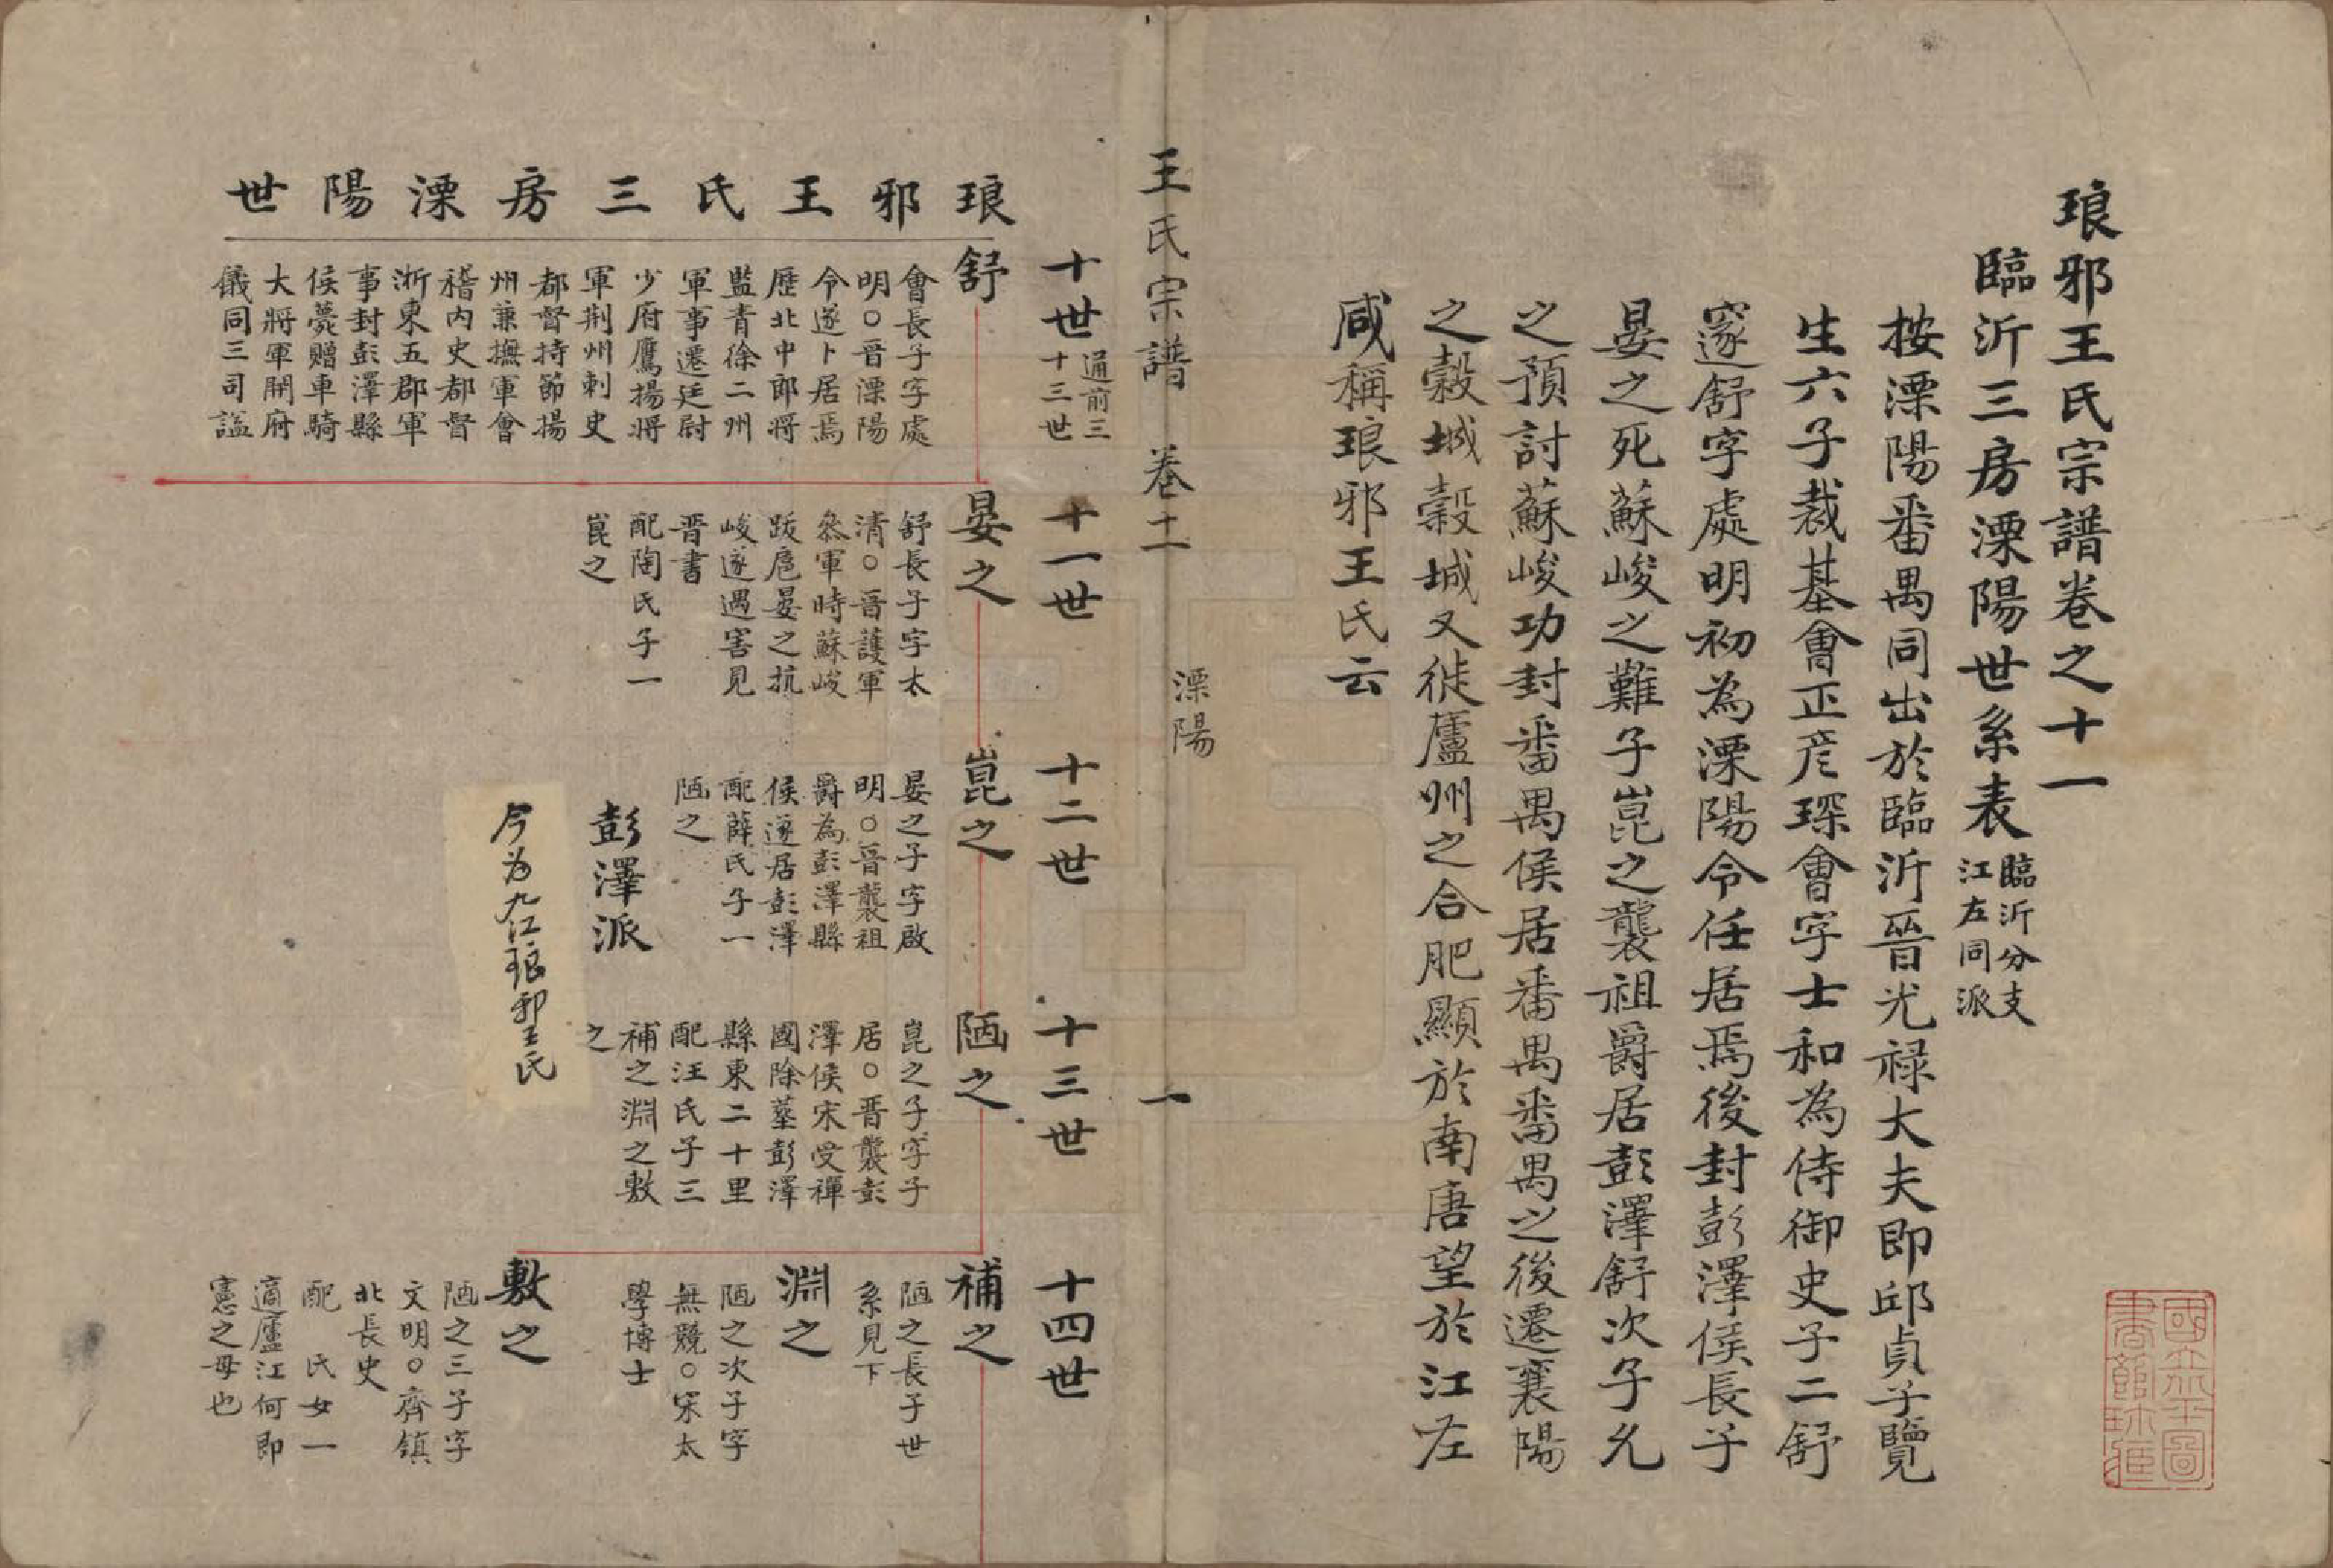 琅邪王氏宗譜卷之十一
臨沂三房溧陽世系表
臨沂分支
江左同派
按溧陽番禺同出於臨沂晉光祿大夫即邱貞子覽
生六子裁基會正彦琛會字士和為侍御史子二舒
邃舒字處明初為溧陽令任居焉後封彭澤侯長子
晏之死蘇峻之難子崑之襲祖爵居彭澤舒次子允
之預討蘇峻功封番禺侯居番禺番禺之後遷襄陽
之穀城穀城又徙廬州之合肥顯於南唐望於江左
咸稱琅邪王氏云
王氏宗譜 卷十一 溧陽 一
琅邪王氏三房溧陽世
十世
通前三
十三世
舒
會長子字處
明○晉溧陽
令遂卜居焉
歷北中郎將
監青徐二州
軍事遷廷尉
少府鷹揚將
軍荆州刺史
都督持節揚
州兼撫軍會
稽内史都督
浙東五郡軍
事封彭澤縣
侯薨贈車騎
大將軍開府
儀同三司諡
十一世
晏之
舒長子字太
清○晉護軍
叅軍時蘇峻
跋扈晏之抗
峻遂遇害見
晋書
配陶氏子一
崑之
十二世
崑之
晏之子字啟
明○晉襲祖
爵為彭澤縣
侯遂居彭澤
配薛氏子一
陋之
彭澤派
今为九江琅邪王氏
十三世
陋之
崑之子字子
居○晋襲彭
澤侯宋受禪
國除墓彭澤
縣東二十里
配汪氏子三
補之淵之敷
之
十四世
補之
陋之長子世
系見下
淵之
陋之次子字
無競○宋太
學博士
敷之
陋之三子字
文明○齊鎮
北長史
配 氏女一
適廬江何即
憲之母也
國立北平圖
書館珍藏